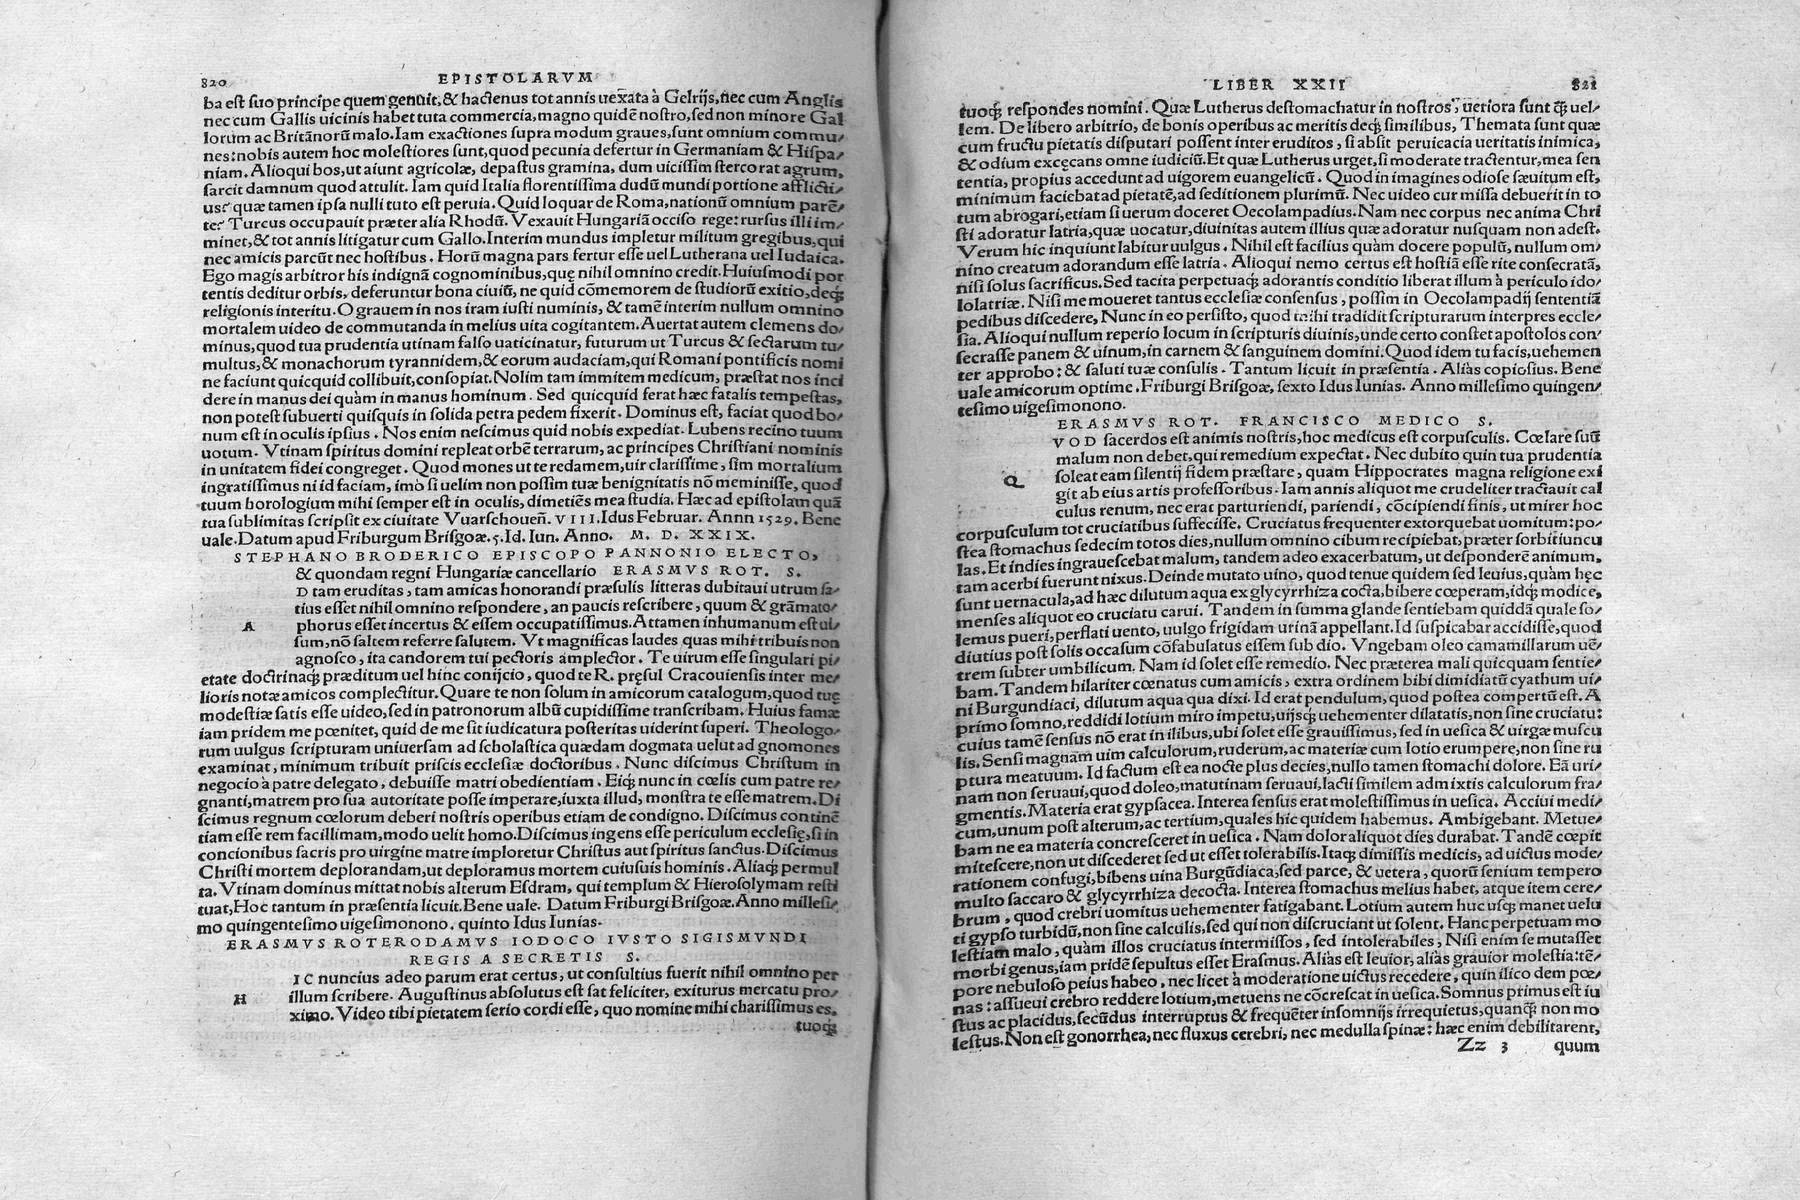 820 EPISTOLARVM
ba est suo principe quem genuit, & hactenus tot annis uexata à Gelrijs, nec cum Anglis
nec cum Gallis uicinis habet tuta commercia, magno quidẽ nostro, sed non minore Gal
lorum ac Britãnorũ malo. Iam exactiones supra modum graues, sunt omnium commu-
nes: nobis autem hoc molestiores sunt, quod pecunia defertur in Germaniam & Hispa-
niam. Alioqui bos, ut aiunt agricolæ, depastus gramina, dum uicissim stercorat agrum,
sarcit damnum quod attulit. Iam quid Italia florentissima dudũ mundi portione afflicti-
us? quæ tamen ipsa nulli tuto est peruia. Quid loquar de Roma, nationũ omnium parẽ-
te? Turcus occupauit præter alia Rhodũ. Vexauit Hungariã occiso rege: rursus illi im-
minet, & tot annis litigatur cum Gallo. Interim mundus impletur militum gregibus, qui
nec amicis parcũt nec hostibus. Horũ magna pars fertur esse uel Lutherana uel Iudaica.
Ego magis arbitror his indignã cognominibus, quę nihil omnino credit. Huiusmodi por
tentis deditur orbis, deferuntur bona ciuiũ, ne quid cõmemorem de studiorũ exitio, deq́;
religionis interitu. O grauem in nos iram iusti numinis, & tamẽ interim nullum omnino
mortalem uideo de commutanda in melius uita cogitantem. Auertat autem clemens do-
minus, quod tua prudentia utinam falso uaticinatur, futurum ut Turcus & sectarum tu-
multus, & monachorum tyrannidem, & eorum audaciam, qui Romani pontificis nomi
ne faciunt quicquid collibuit, consopiat. Nolim tam immitem medicum, præstat nos inci
dere in manus dei quàm in manus hominum. Sed quicquid ferat hæc fatalis tempestas,
non potest subuerti quisquis in solida petra pedem fixerit. Dominus est, faciat quod bo-
num est in oculis ipsius. Nos enim nescimus quid nobis expediat. Lubens recino tuum
uotum. Vtinam spiritus domini repleat orbẽ terrarum, ac principes Christiani nominis
in unitatem fidei congreget. Quod mones ut te redamem, uir clarissime, sim mortalium
ingratissimus ni id faciam, imò si uelim non possim tuæ benignitatis nõ meminisse, quod
tuum horologium mihi semper est in oculis, dimetiẽs mea studia. Hæc ad epistolam quã
tua sublimitas scripsit ex ciuitate Vuarschoueñ. VIII. Idus Februar. Annn 1529. Bene
uale. Datum apud Friburgum Brisgoæ. 5. Id. Iun. Anno. M. D. XXIX.
STEPHANO BRODERICO EPISCOPO PANNONIO ELECTO,
& quondam regni Hungariæ cancellario ERASMVS ROT. S.
A
D tam eruditas, tam amicas honorandi præsulis litteras dubitaui utrum sa-
tius esset nihil omnino respondere, an paucis rescribere, quum & grãmato-
phorus esset incertus & essem occupatissimus. Attamen inhumanum est ui-
sum, nõ saltem referre salutem. Vt magnificas laudes quas mihi tribuis non
agnosco, ita candorem tui pectoris amplector. Te uirum esse singulari pi-
etate doctrinaq́; præditum uel hinc conijcio, quod te R. pręsul Cracouiensis inter me-
lioris notæ amicos complectitur. Quare te non solum in amicorum catalogum, quod tuę
modestiæ satis esse uideo, sed in patronorum albũ cupidissime transcribam. Huius famæ
iam pridem me pœnitet, quid de me sit iudicatura posteritas uiderint superi. Theologo-
rum uulgus scripturam uniuersam ad scholastica quædam dogmata uelut ad gnomones
examinat, minimum tribuit priscis ecclesiæ doctoribus. Nunc discimus Christum in
negocio à patre delegato, debuisse matri obedientiam. Eiq́; nunc in cœlis cum patre re-
gnanti, matrem pro sua autoritate posse imperare, iuxta illud, monstra te esse matrem. Di
scimus regnum cœlorum deberi nostris operibus etiam de condigno. Discimus continẽ
tiam esse rem facillimam, modo uelit homo. Discimus ingens esse periculum ecclesię, si in
concionibus sacris pro uirgine matre imploretur Christus aut spiritus sanctus. Discimus
Christi mortem deplorandam, ut deploramus mortem cuiusuis hominis. Aliaq́; permul
ta. Vtinam dominus mittat nobis alterum Esdram, qui templum & Hierosolymam resti
tuat, Hoc tantum in præsentia licuit. Bene uale. Datum Friburgi Brisgoæ. Anno millesi-
mo quingentesimo uigesimonono. quinto Idus Iunias.
ERASMVS ROTERODAMVS IODOCO IVSTO SIGISMVNDI
REGIS A SECRETIS S.
H
IC nuncius adeo parum erat certus, ut consultius fuerit nihil omnino per
illum scribere. Augustinus absolutus est sat feliciter, exiturus mercatu pro-
ximo. Video tibi pietatem serio cordi esse, quo nomine mihi charissimus es,
tuoq́;
LIBER XXII 821
tuoq́; respondes nomini. Quæ Lutherus destomachatur in nostros, ueriora sunt q̃ uel-
lem. De libero arbitrio, de bonis operibus ac meritis deq́; similibus, Themata sunt quæ
cum fructu pietatis disputari possent inter eruditos, si absit peruicacia ueritatis inimica,
& odium excęcans omne iudiciũ. Et quæ Lutherus urget, si moderate tractentur, mea sen
tentia, propius accedunt ad uigorem euangelicũ. Quod in imagines odiose sæuitum est,
minimum faciebat ad pietatẽ, ad seditionem plurimũ. Nec uideo cur missa debuerit in to
tum abrogari, etiam si uerum doceret Oecolampadius. Nam nec corpus nec anima Chri
sti adoratur latria, quæ uocatur, diuinitas autem illius quæ adoratur nusquam non adest.
Verum hic inquiunt labitur uulgus. Nihil est facilius quàm docere populũ, nullum om-
nino creatum adorandum esse latria. Alioqui nemo certus est hostiã esse rite consecratã,
nisi solus sacrificus. Sed tacita perpetuaq́; adorantis conditio liberat illum à periculo ido-
lolatriæ. Nisi me moueret tantus ecclesiæ consensus, possim in Oecolampadij sententiã
pedibus discedere, Nunc in eo persisto, quod mihi tradidit scripturarum interpres eccle-
sia. Alioqui nullum reperio locum in scripturis diuinis, unde certo constet apostolos con-
secrasse panem & uinum, in carnem & sanguinem domini. Quod idem tu facis, uehemen
ter approbo: & saluti tuæ consulis. Tantum licuit in præsentia. Aliàs copiosius. Bene
uale amicorum optime. Friburgi Brisgoæ, sexto Idus Iunias. Anno millesimo quingen-
tesimo uigesimonono.
ERASMVS ROT. FRANCISCO MEDICO S.
Q
VOD sacerdos est animis nostris, hoc medicus est corpusculis. Cœlare suũ
malum non debet, qui remedium expectat. Nec dubito quin tua prudentia
soleat eam silentij fidem præstare, quam Hippocrates magna religione exi
git ab eius artis professoribus. Iam annis aliquot me crudeliter tractauit cal
culus renum, nec erat parturiendi, pariendi, cõcipiendi finis, ut mirer hoc
corpusculum tot cruciatibus suffecisse. Cruciatus frequenter extorquebat uomitum: po-
stea stomachus sedecim totos dies, nullum omnino cibum recipiebat, præter sorbitiuncu
las. Et indies ingrauescebat malum, tandem adeo exacerbatum, ut desponderẽ animum,
tam acerbi fuerunt nixus. Deinde mutato uino, quod tenue quidem sed leuius, quàm hęc
sunt uernacula, ad hæc dilutum aqua ex glycyrrhiza cocta, bibere cœperam, idq́; modice,
menses aliquot eo cruciatu carui. Tandem in summa glande sentiebam quiddã quale so-
lemus pueri, perflati uento, uulgo frigidam urinã appellant. Id suspicabar accidisse, quod
diutius post solis occasum cõfabulatus essem sub dio. Vngebam oleo camamillarum uẽ-
trem subter umbilicum. Nam id solet esse remedio. Nec præterea mali quicquam sentie-
bam. Tandem hilariter cœnatus cum amicis, extra ordinem bibi dimidiatũ cyathum ui-
ni Burgundiaci, dilutum aqua qua dixi. Id erat pendulum, quod postea compertũ est. A
primo somno, reddidi lotium miro impetu, uijsq́; uehementer dilatatis, non sine cruciatu:
cuius tamẽ sensus nõ erat in ilibus, ubi solet esse grauissimus, sed in uesica & uirgæ muscu
lis. Sensi magnam uim calculorum, ruderum, ac materiæ cum lotio erumpere, non sine ru
ptura meatuum. Id factum est ea nocte plus decies, nullo tamen stomachi dolore. Eã uri-
nam non seruaui, quod doleo, matutinam seruaui, lacti similem admixtis calculorum fra-
gmentis. Materia erat gypsacea. Interea sensus erat molestissimus in uesica. Acciui medi-
cum, unum post alterum, ac tertium, quales hic quidem habemus. Ambigebant. Metue-
bam ne ea materia concresceret in uesica. Nam dolor aliquot dies durabat. Tandẽ cœpit
mitescere, non ut discederet sed ut esset tolerabilis. Itaq́; dimissis medicis, ad uictus mode-
rationem confugi, bibens uina Burgũdiaca, sed parce, & uetera, quorũ senium tempero
multo saccaro & glycyrrhiza decocta. Interea stomachus melius habet, atque item cere-
brum, quod crebri uomitus uehementer fatigabant. Lotium autem huc usq́; manet uelu
ti gypso turbidũ, non sine calculis, sed qui non discruciant ut solent. Hanc perpetuam mo
lestiam malo, quàm illos cruciatus intermissos, sed intolerabiles, Nisi enim se mutasset
morbi genus, iam pridẽ sepultus esset Erasmus. Aliàs est leuior, aliàs grauior molestia: tẽ-
pore nebuloso peius habeo, nec licet à moderatione uictus recedere, quin ilico dem pœ-
nas: assueui crebro reddere lotium, metuens ne cõcrescat in uesica. Somnus primus est iu
stus ac placidus, secũdus interruptus & frequẽter insomnijs irrequietus, quanq̃ non mo
lestus. Non est gonorrhea, nec fluxus cerebri, nec medulla spinæ: hæc enim debilitarent,
Zz 3 quum